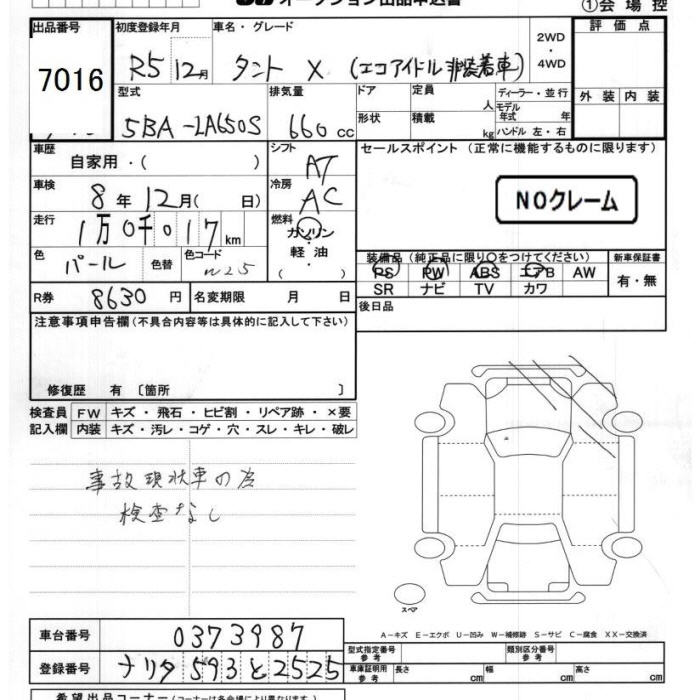 ①会場控
出品番号 初度登録年月 車名・グレード 2WD・4WD 評価点
7016 R5 12月 タント X (エコアイドル非装着車)
型式 排気量 ドア 定員 人 ディーラー・並行 外装 内装
5BA-LA650S 660cc 形状 積載 kg モデル年式 年 ハンドル 左・右
車歴 自家用・( ) シフト AT セールスポイント(正常に機能するものに限ります)
車検 8年12月( 日) 冷房 AC NOクレーム
走行 1万0千017km 燃料 ガソリン・軽油・( )
色 パール 色替 色コード W25 装備品(純正品に限り○をつけてください) 新車保証書
PS PW ABS エアB AW 有・無
SR ナビ TV カワ
R券 8630円 名変期限 月 日 後日品
注意事項申告欄(不具合内容等は具体的に記入して下さい)
修復歴 有〔箇所 〕
検査員 FW キズ・飛石・ヒビ割・リペア跡・×要
記入欄 内装 キズ・汚レ・コゲ・穴・スレ・キレ・破レ
事故現状車の為
検査なし
スペア
A-キズ E-エクボ U-凹み W-補修跡 S-サビ C-腐食 XX-交換済
車台番号 0373987 型式指定番号 参考 類別区分番号 参考
登録番号 ナリタ593と2525 車庫証明用 参考 長さ cm 幅 cm 高さ cm
希望出品コーナー(コーナーは各会場により異なります。)